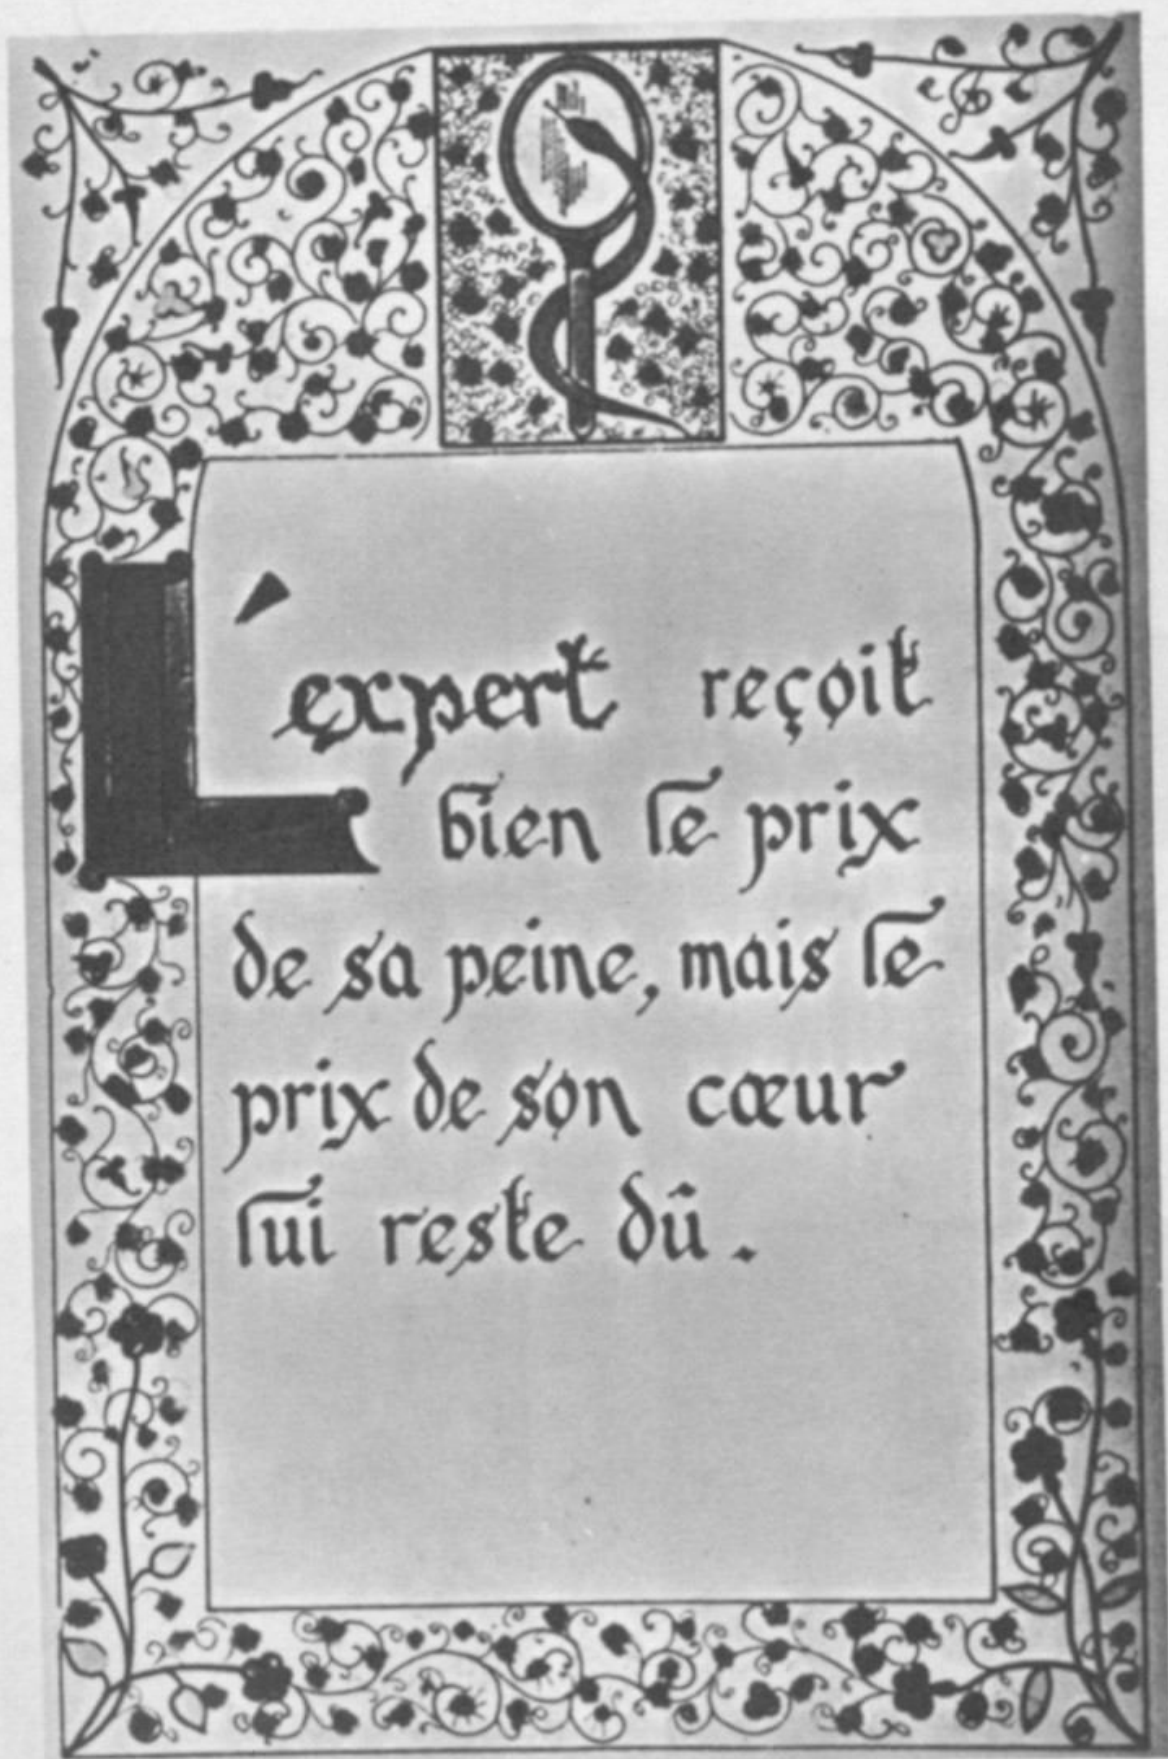 L'expert reçoit
bien le prix
de sa peine, mais le
prix de son cœur
lui reste dû.